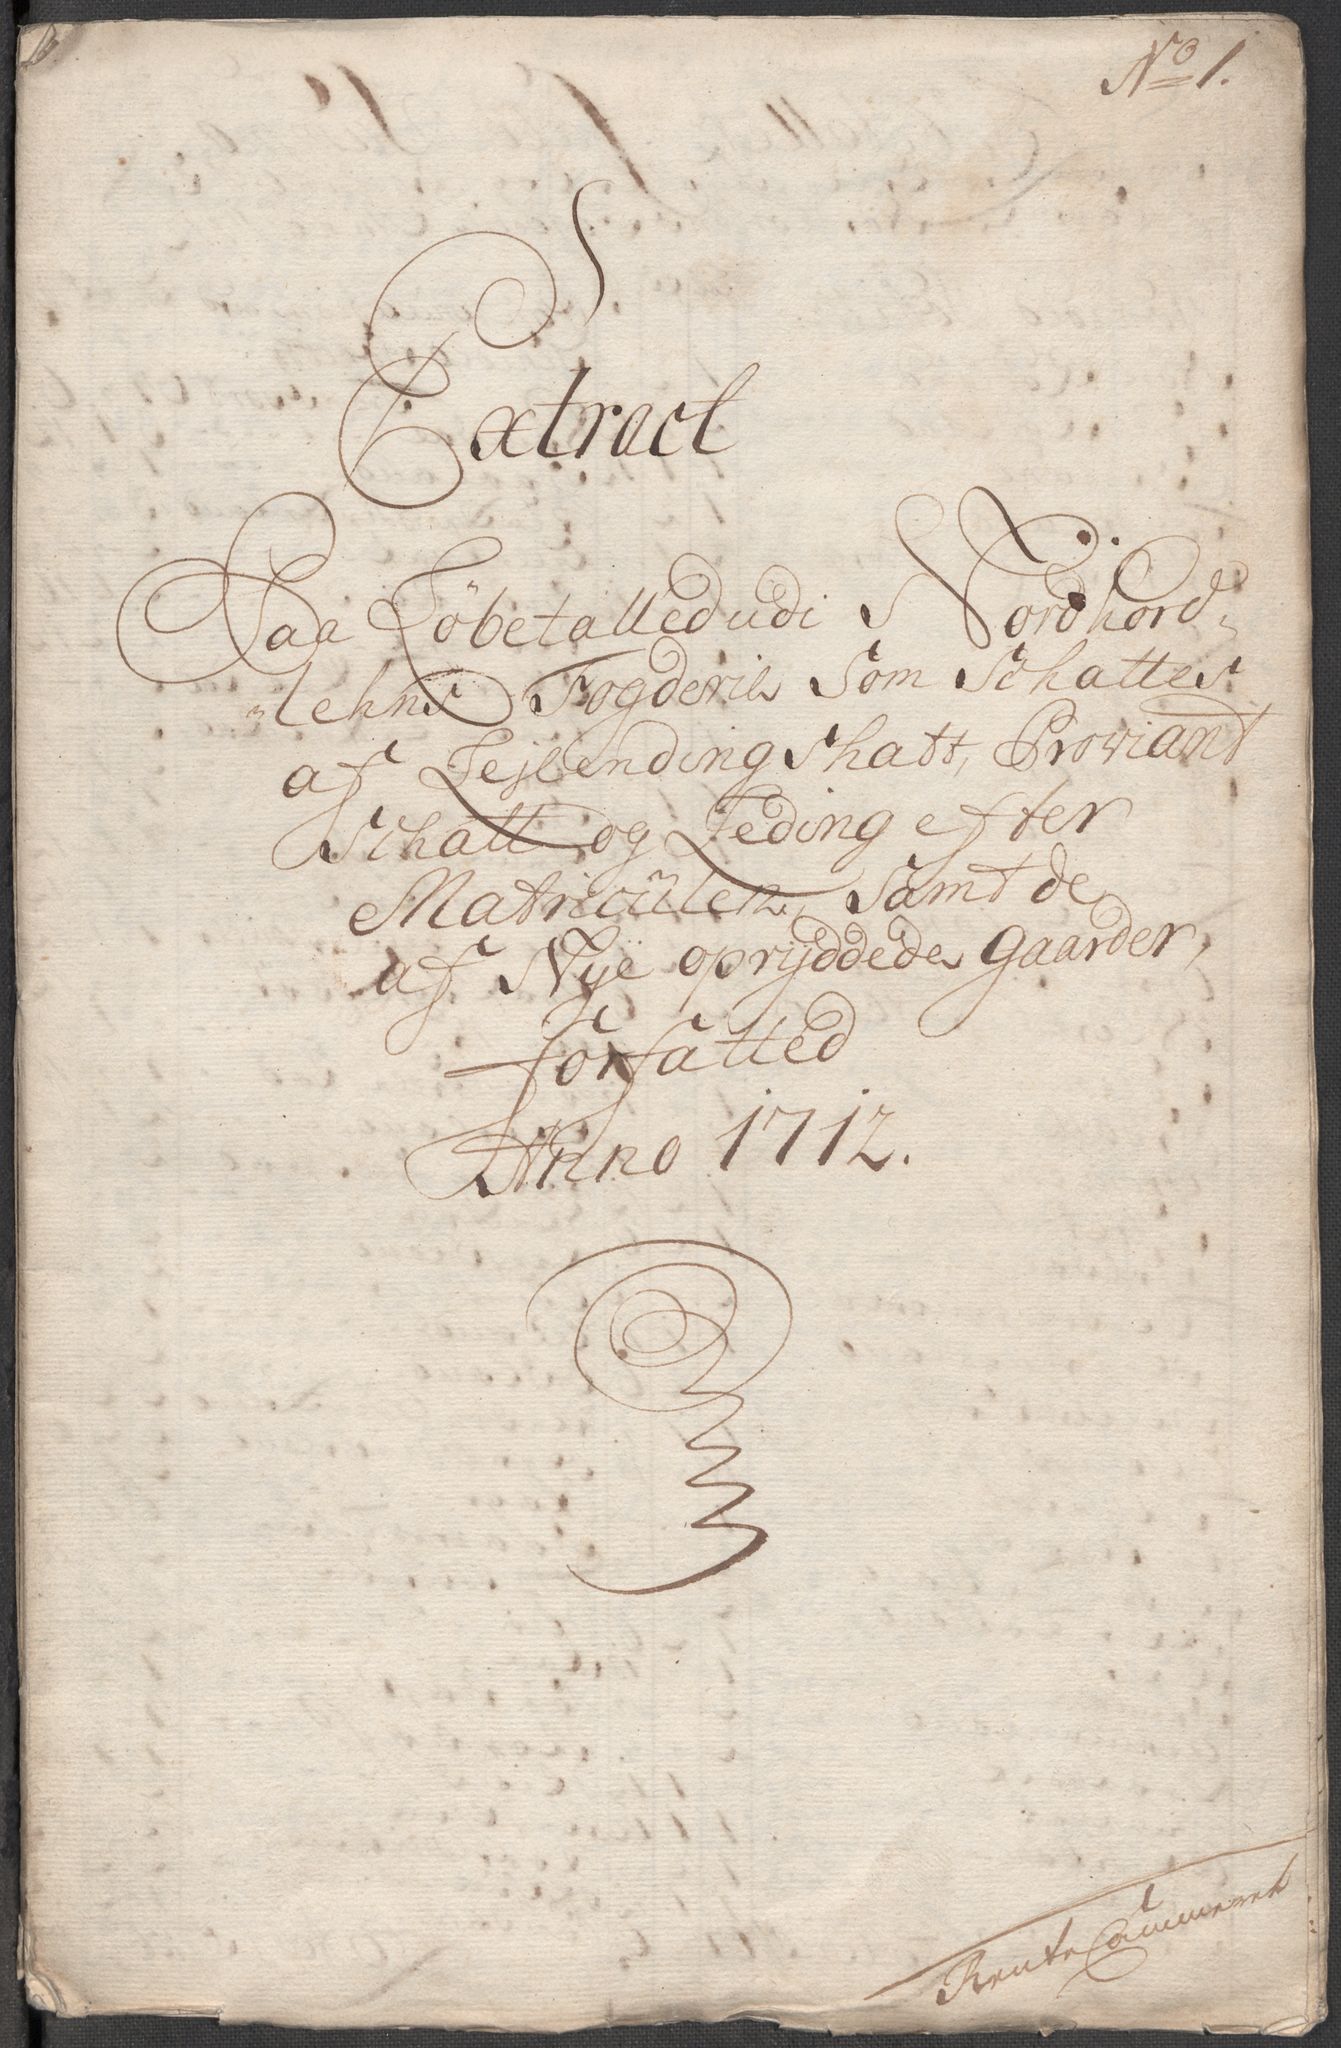 No 1.
Extract
Paa Löbetalled udi Nordhord-
lehns Fogderie Som Schattes
af Lejlending Skatt, Proviant
Schatt og Leding efter
Matriculen, Samt de
af Nÿe oprÿddede Gaarder,
forfatted
Anno 1712.
Rente Cammeret